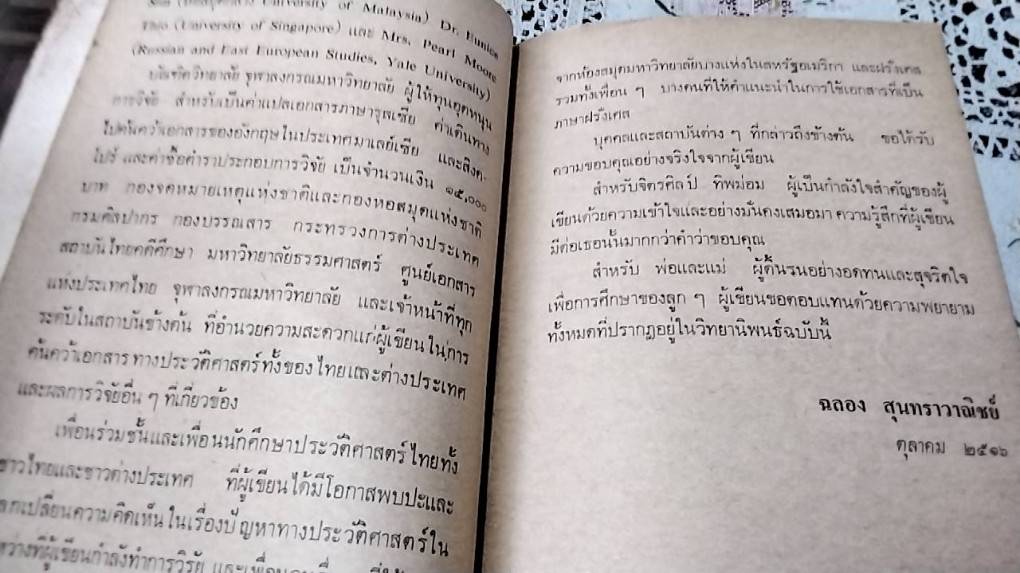 University of Malaysia) Dr. Eunice
Thio (University of Singapore) และ Mrs. Pearl Moore
(Russian and East European Studies, Yale University)
บัณฑิตวิทยาลัย จุฬาลงกรณมหาวิทยาลัย ผู้ให้ทุนอุดหนุน
การวิจัย สำหรับเป็นค่าแปลเอกสารภาษารุสเซีย ค่าเดินทาง
ไปค้นคว้าเอกสารของอังกฤษในประเทศมาเลย์เซีย และสิงค-
โปร์ และค่าซื้อตำราประกอบการวิจัย เป็นจำนวนเงิน ๑๕,๐๐๐
บาท กองจดหมายเหตุแห่งชาติและกองหอสมุดแห่งชาติ
กรมศิลปากร กองบรรณสาร กระทรวงการต่างประเทศ
สถาบันไทยคดีศึกษา มหาวิทยาลัยธรรมศาสตร์ ศูนย์เอกสาร
แห่งประเทศไทย จุฬาลงกรณมหาวิทยาลัย และเจ้าหน้าที่ทุก
ระดับในสถาบันข้างต้น ที่อำนวยความสะดวกแก่ผู้เขียนในการ
ค้นคว้าเอกสารทางประวัติศาสตร์ทั้งของไทยและต่างประเทศ
และผลการวิจัยอื่น ๆ ที่เกี่ยวข้อง
เพื่อนร่วมชั้นและเพื่อนนักศึกษาประวัติศาสตร์ไทยทั้ง
ชาวไทยและชาวต่างประเทศ ที่ผู้เขียนได้มีโอกาสพบปะและ
แลกเปลี่ยนความคิดเห็นในเรื่องปัญหาทางประวัติศาสตร์ใน
หว่างที่ผู้เขียนกำลังทำการวิจัย และเพื่อน
จากห้องสมุดมหาวิทยาลัยบางแห่งในสหรัฐอเมริกา และฝรั่งเศส
รวมทั้งเพื่อน ๆ บางคนที่ให้คำแนะนำในการใช้เอกสารที่เป็น
ภาษาฝรั่งเศส
บุคคลและสถาบันต่าง ๆ ที่กล่าวถึงข้างต้น ขอได้รับ
ความขอบคุณอย่างจริงใจจากผู้เขียน
สำหรับจิตรศิลป์ ทิพม่อม ผู้เป็นกำลังใจสำคัญของผู้
เขียนด้วยความเข้าใจและอย่างมั่นคงเสมอมา ความรู้สึกที่ผู้เขียน
มีต่อเธอนั้นมากกว่าคำว่าขอบคุณ
สำหรับ พ่อและแม่ ผู้ดิ้นรนอย่างอดทนและสุจริตใจ
เพื่อการศึกษาของลูก ๆ ผู้เขียนขอตอบแทนด้วยความพยายาม
ทั้งหมดที่ปรากฏอยู่ในวิทยานิพนธ์ฉบับนี้
ฉลอง สุนทราวาณิชย์
ตุลาคม ๒๕๑๖